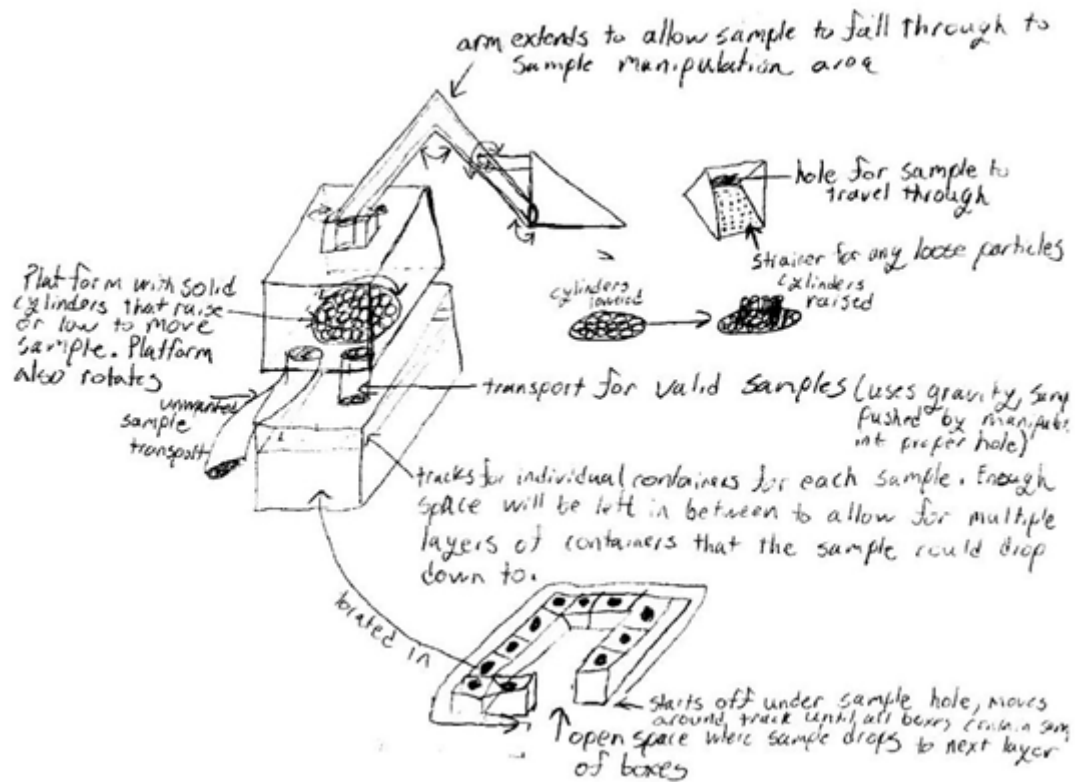 arm extends to allow sample to fall through to
sample manipulation area
hole for sample to
travel through
strainer for any loose particles
cylinders
lowered
cylinders
raised
Platform with solid
cylinders that raise
or low to move
sample. Platform
also rotates
unwanted
sample
transport
transport for valid samples (uses gravity,
pushed by
proper hole)
tracks for individual containers for each sample. Enough
space will be left in between to allow for multiple
layers of containers that the sample could drop
down to.
located in
starts off under sample hole, moves
around track until all boxes contain
open space where sample drops to next layer
of boxes